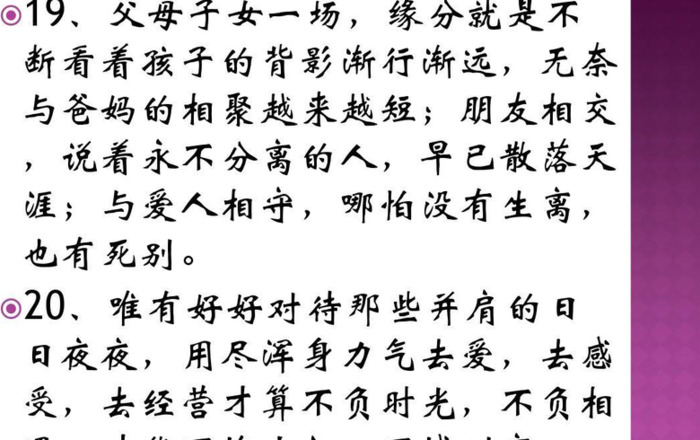 19、父母子女一场，缘分就是不
断看着孩子的背影渐行渐远，无奈
与爸妈的相聚越来越短；朋友相交
，说着永不分离的人，早已散落天
涯；与爱人相守，哪怕没有生离，
也有死别。
20、唯有好好对待那些并肩的日
日夜夜，用尽浑身力气去爱，去感
受，去经营才算不负时光，不负相